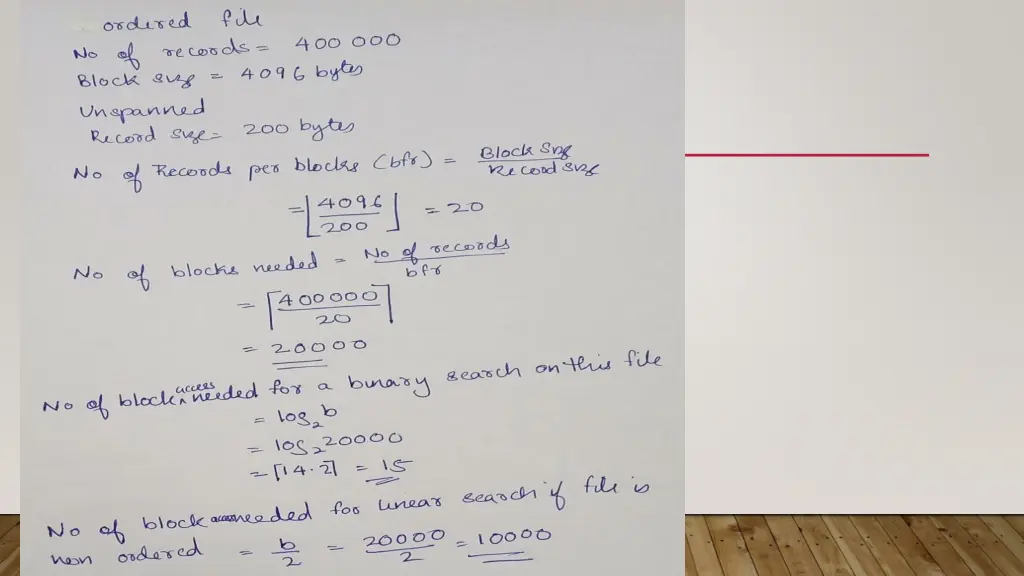 ordered file
No of records = 400 000
Block size = 4096 bytes
Unspanned
Record size = 200 bytes
No of Records per blocks (bfr) = Block size / Record size
= ⌊4096 / 200⌋ = 20
No of blocks needed = No of records / bfr
= ⌈400000 / 20⌉
= 20000
No of block access needed for a binary search on this file
= log₂b
= log₂20000
= ⌈14.2⌉ = 15
No of block access needed for linear search if file is
non ordered = b/2 = 20000/2 = 10000